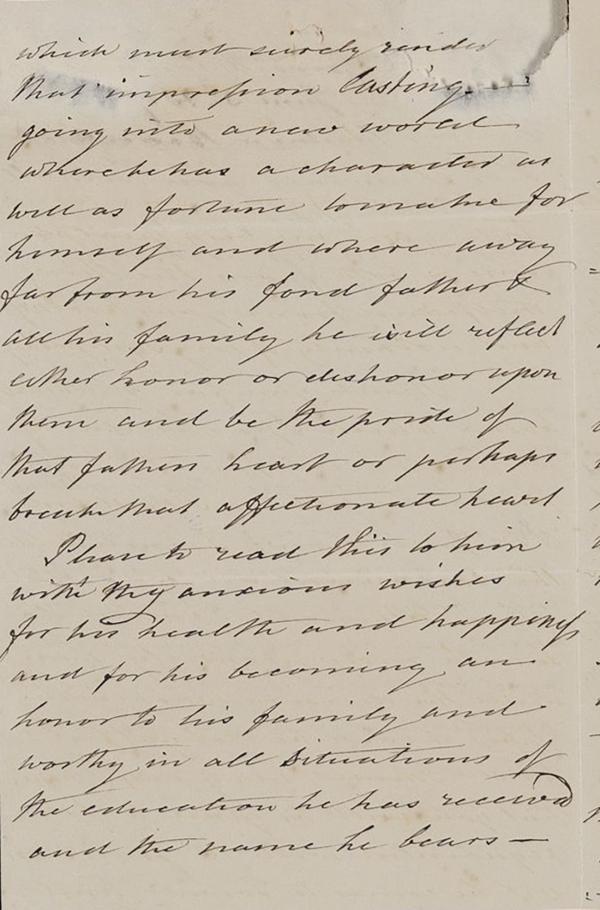 which must surely render
that impression lasting —
going into a new world
where he has a character as
well as fortune to make for
himself and where away
far from his fond father &
all his family he will reflect
either honor or dishonor upon
them and be the pride of
that fathers heart or perhaps
break that affectionate heart
Please to read this to him
with my anxious wishes
for his health and happiness
and for his becoming an
honor to his family and
worthy in all situations of
the education he has received
and the name he bears —